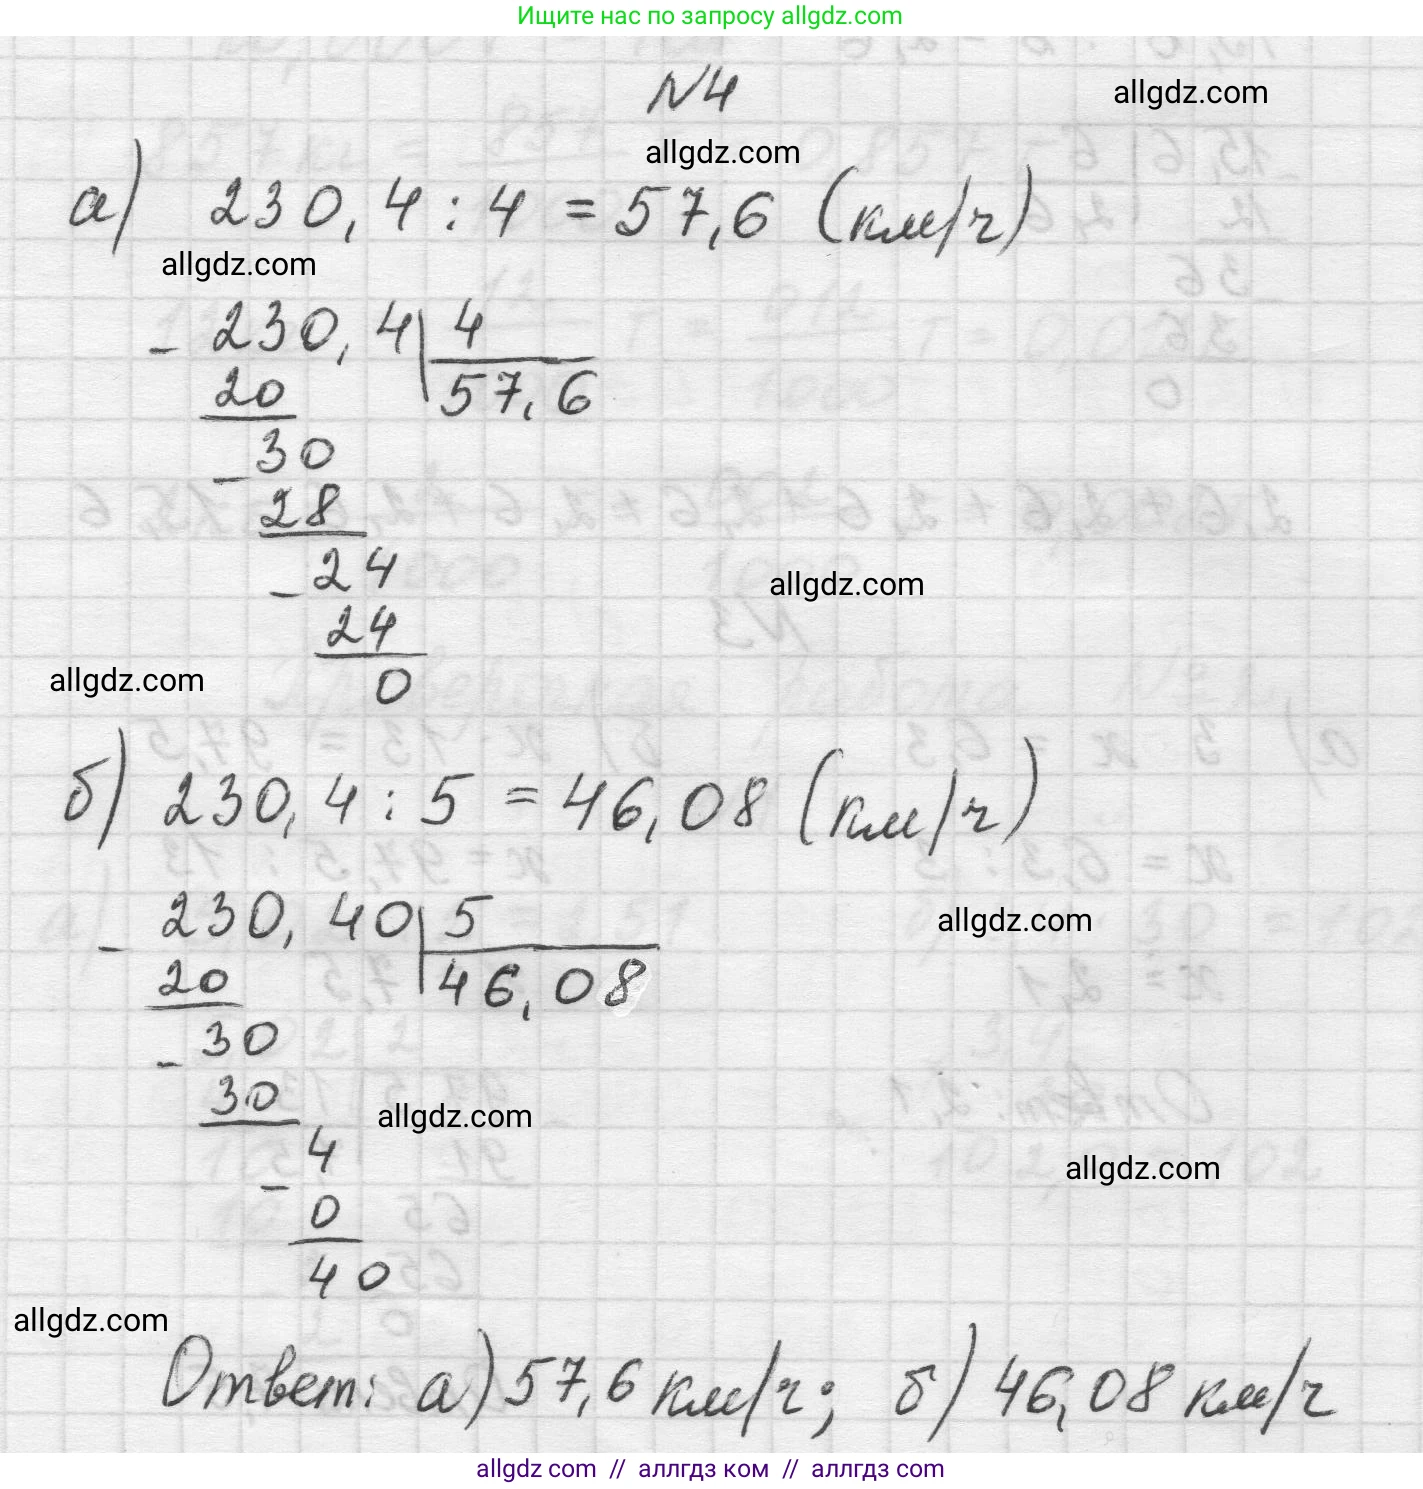 Ищите нас по запросу allgdz.com
N4
allgdz.com
allgdz.com
а) 230,4 : 4 = 57,6 (км/ч)
allgdz.com
- 230,4 | 4
20 57,6
- 30
28
- 24
allgdz.com
24
allgdz.com
0
б) 230,4 : 5 = 46,08 (км/ч)
- 230,40 | 5
allgdz.com
20 46,08
- 30
30
allgdz.com
- 4
allgdz.com
0
40
allgdz.com
Ответ: а) 57,6 км/ч; б) 46,08 км/ч
allgdz com // аллгдз ком // аллгдз com